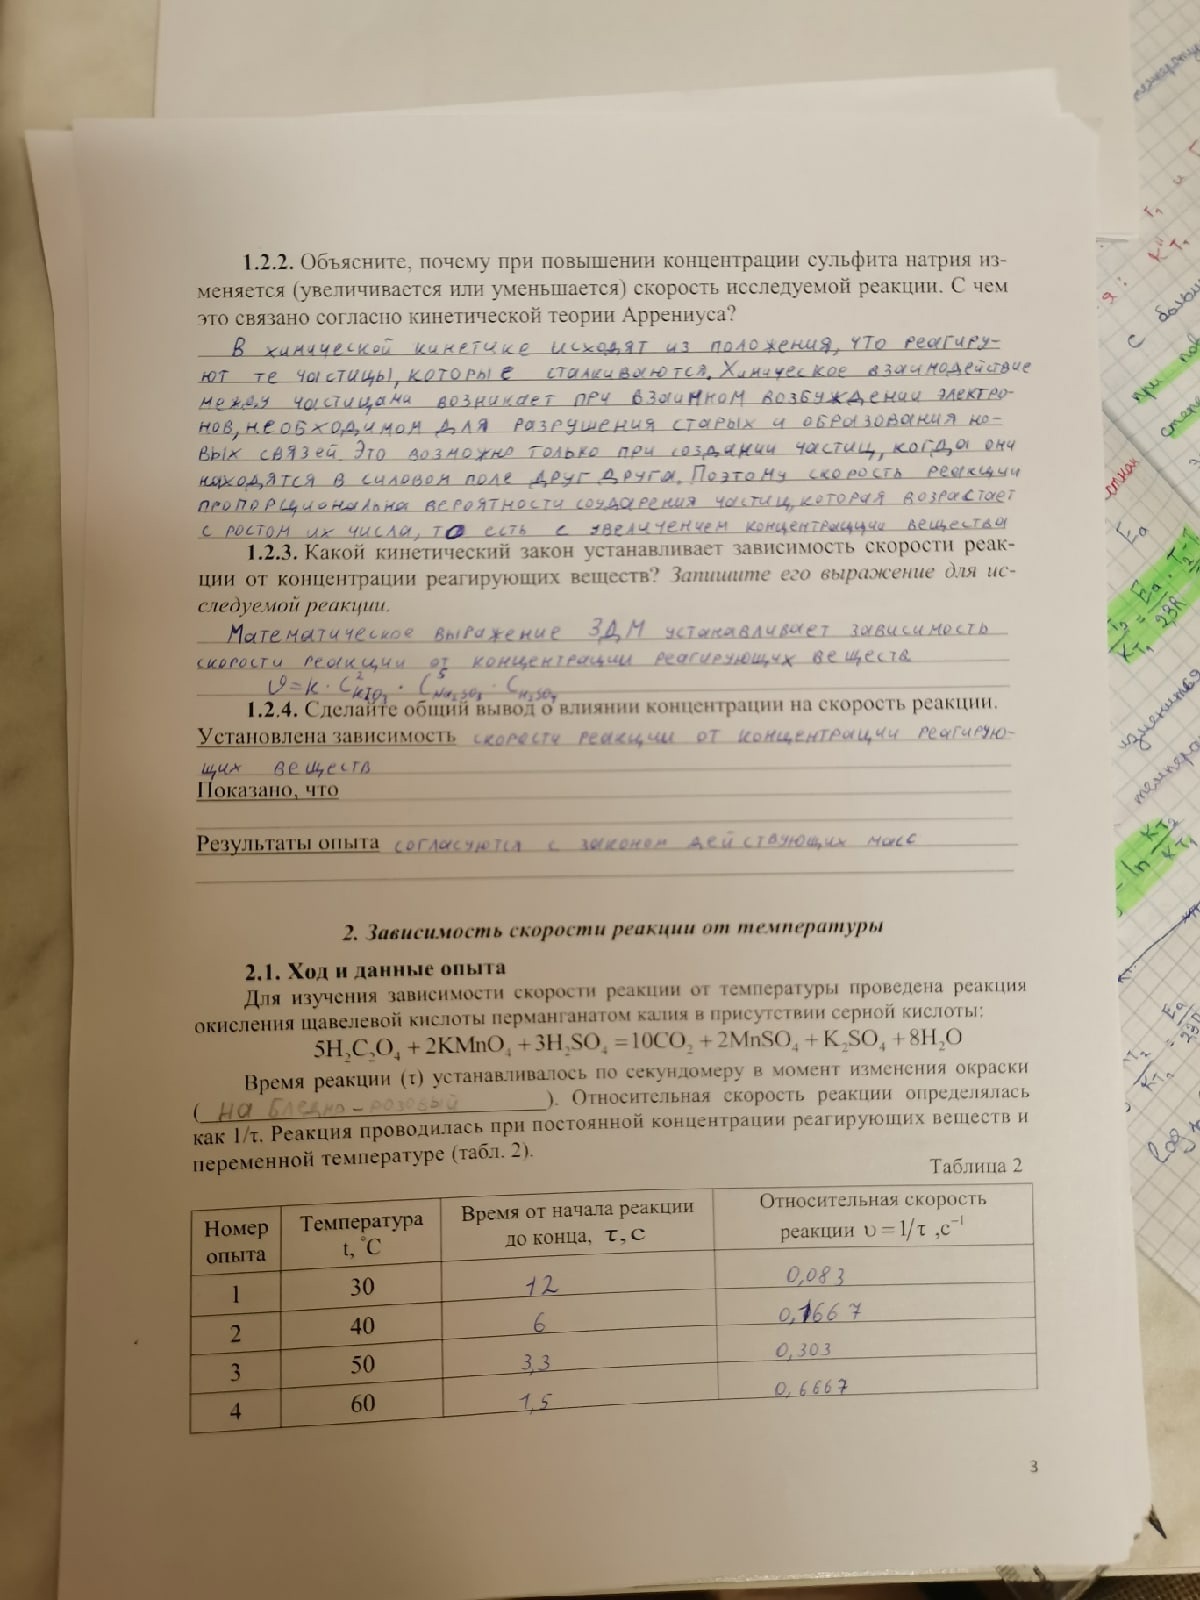 1.2.2. Объясните, почему при повышении концентрации сульфита натрия из-
меняется (увеличивается или уменьшается) скорость исследуемой реакции. С чем
это связано согласно кинетической теории Аррениуса?
В химической кинетике исходят из положения, что реагиру-
ют те частицы, которые сталкиваются. Химическое взаимодействие
между частицами возникает при взаимном возбуждении электро-
нов, необходимом для разрушения старых и образования но-
вых связей. Это возможно только при создании частиц, когда они
находятся в силовом поле друг друга. Поэтому скорость реакции
пропорциональна вероятности соударения частиц, которая возрастает
с ростом их числа, то есть с увеличением концентрации вещества
1.2.3. Какой кинетический закон устанавливает зависимость скорости реак-
ции от концентрации реагирующих веществ? Запишите его выражение для ис-
следуемой реакции.
Математическое выражение ЗДМ устанавливает зависимость
скорости реакции от концентрации реагирующих веществ
υ=k·C²KIO₃·C⁵Na₂SO₃·CH₂SO₄
1.2.4. Сделайте общий вывод о влиянии концентрации на скорость реакции.
Установлена зависимость скорости реакции от концентрации реагирую-
щих веществ
Показано, что
Результаты опыта согласуются с законом действующих масс
2. Зависимость скорости реакции от температуры
2.1. Ход и данные опыта
Для изучения зависимости скорости реакции от температуры проведена реакция
окисления щавелевой кислоты перманганатом калия в присутствии серной кислоты:
5H₂C₂O₄ + 2KMnO₄ + 3H₂SO₄ = 10CO₂ + 2MnSO₄ + K₂SO₄ + 8H₂O
Время реакции (τ) устанавливалось по секундомеру в момент изменения окраски
(на бледно-розовый). Относительная скорость реакции определялась
как 1/τ. Реакция проводилась при постоянной концентрации реагирующих веществ и
переменной температуре (табл. 2).
Таблица 2
Номер опыта Температура t, °C Время от начала реакции до конца, τ, с Относительная скорость реакции υ = 1/τ, с⁻¹
1 30 12 0,083
2 40 6 0,1667
3 50 3,3 0,303
4 60 1,5 0,6667
3